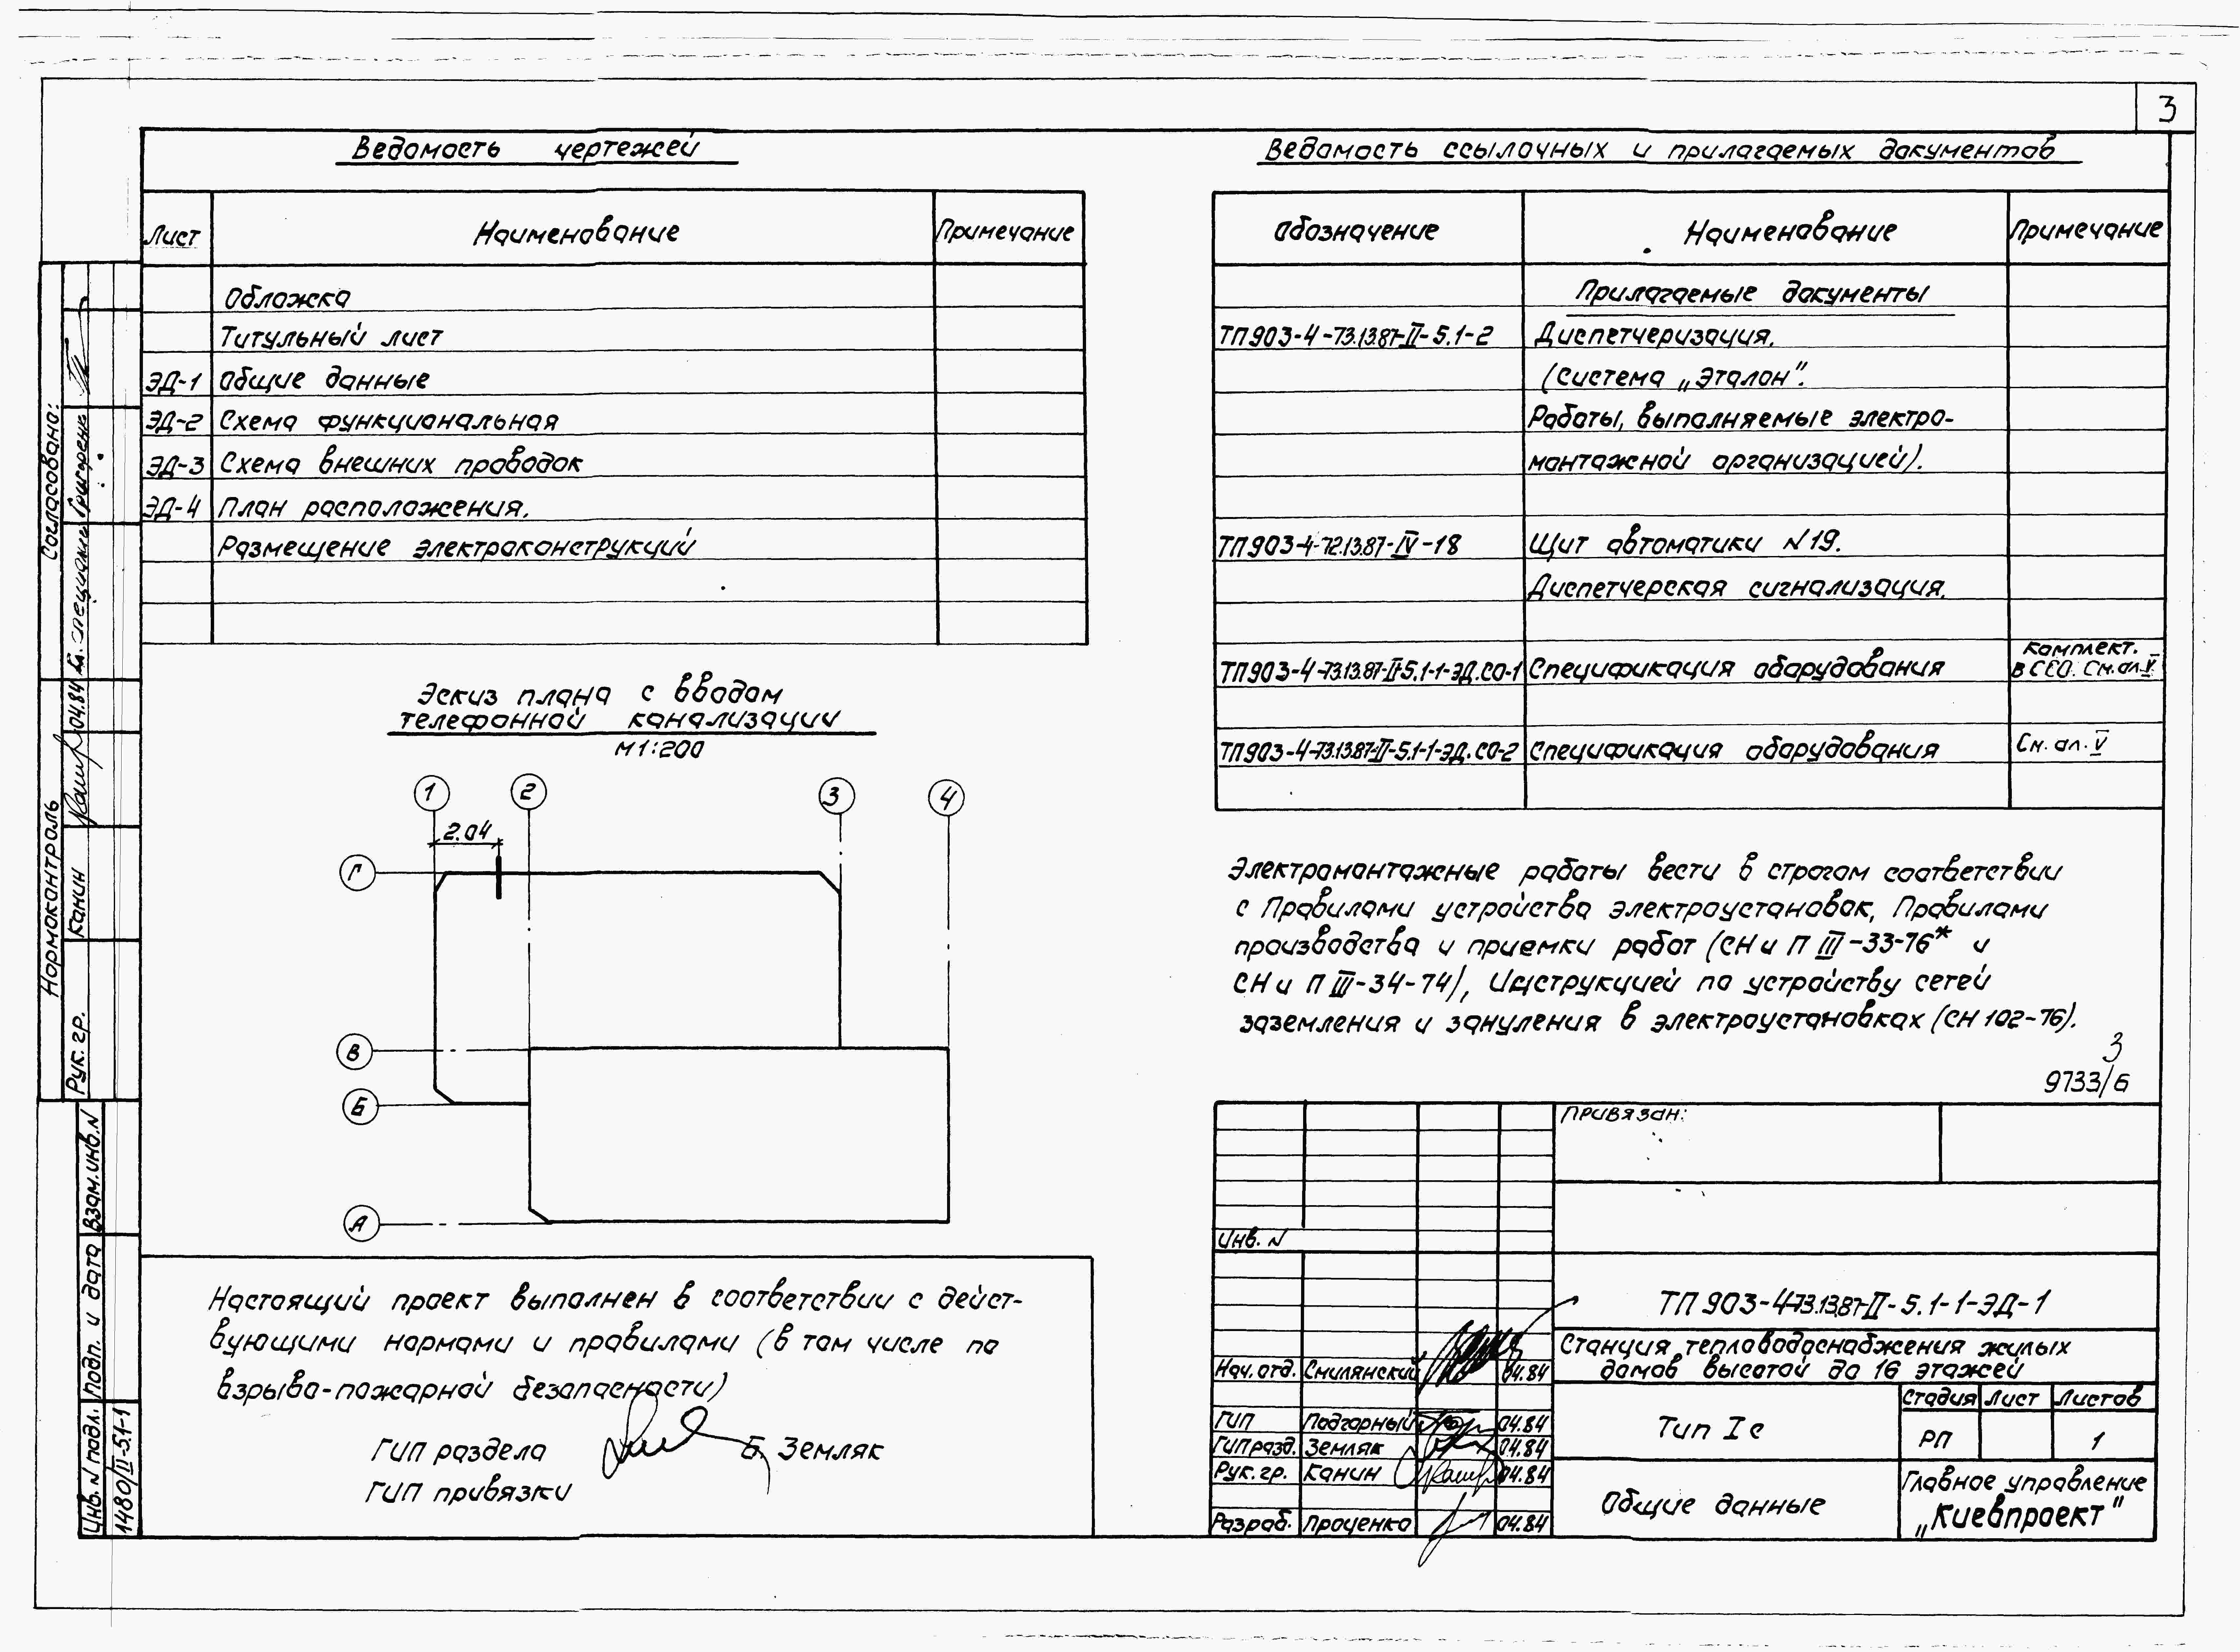 3
Ведомость чертежей
Лист Наименование Примечание
Обложка
Титульный лист
ЭД-1 Общие данные
ЭД-2 Схема функциональная
ЭД-3 Схема внешних проводок
ЭД-4 План расположения.
Размещение электроконструкций
Эскиз плана с вводом
телефонной канализации
М1:200
1 2 3 4
2.04
Г
В
Б
А
Настоящий проект выполнен в соответствии с дейст-
вующими нормами и правилами (в том числе по
взрыво-пожарной безопасности)
ГИП раздела Б. Земляк
ГИП привязки
Ведомость ссылочных и прилагаемых документов
Обозначение Наименование Примечание
Прилагаемые документы
ТП903-4-73.13.87-II-5.1-2 Диспетчеризация.
(Система „Эталон".
Работы, выполняемые электро-
монтажной организацией).
ТП903-4-72.13.87-IV-18 Щит автоматики N19.
Диспетчерская сигнализация.
Комплект.
ТП903-4-73.13.87-II-5.1-1-ЭД.СО-1 Спецификация оборудования в СЕО. См.ал.V.
ТП903-4-73.13.87-II-5.1-1-ЭД.СО-2 Спецификация оборудования См. ал. V
Электромонтажные работы вести в строгом соответствии
с Правилами устройства электроустановок, Правилами
производства и приемки работ (СН и П III-33-76* и
СН и П III-34-74), Инструкцией по устройству сетей
заземления и зануления в электроустановках (СН 102-76).
3
9733/6
Привязан:
Инв. N
ТП903-4-73.13.87-II-5.1-1-ЭД-1
Станция тепловодоснабжения жилых
домов высотой до 16 этажей
Нач. отд. Смилянский 04.84
Стадия Лист Листов
Тип Iс
РП 1
ГИП Подгорный 04.84
ГИП разд. Земляк 04.84
Рук. гр. Канин 04.84
Разраб. Проценко 04.84
Общие данные
Главное управление
„Киевпроект"
Согласовано:
Гл. специалист Григоренко
Нормоконтроль
Рук. гр. Канин 04.84
Взам. инв. N
Подп. и дата
Инв. N подл.
1480/II-5.1-1